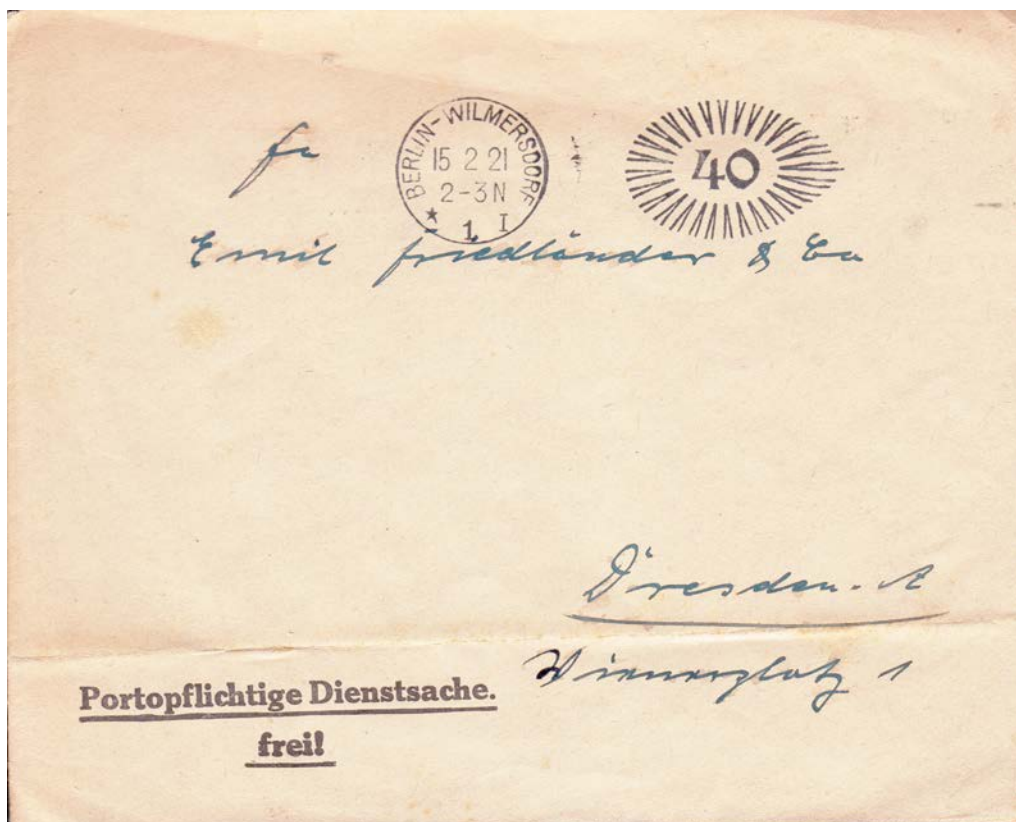 BERLIN-WILMERSDORF
15 2 21
2-3 N
* 1 I
40
fa
Emil Friedländer & Co
Dresden-A
Wienerplatz 1
Portopflichtige Dienstsache.
frei!